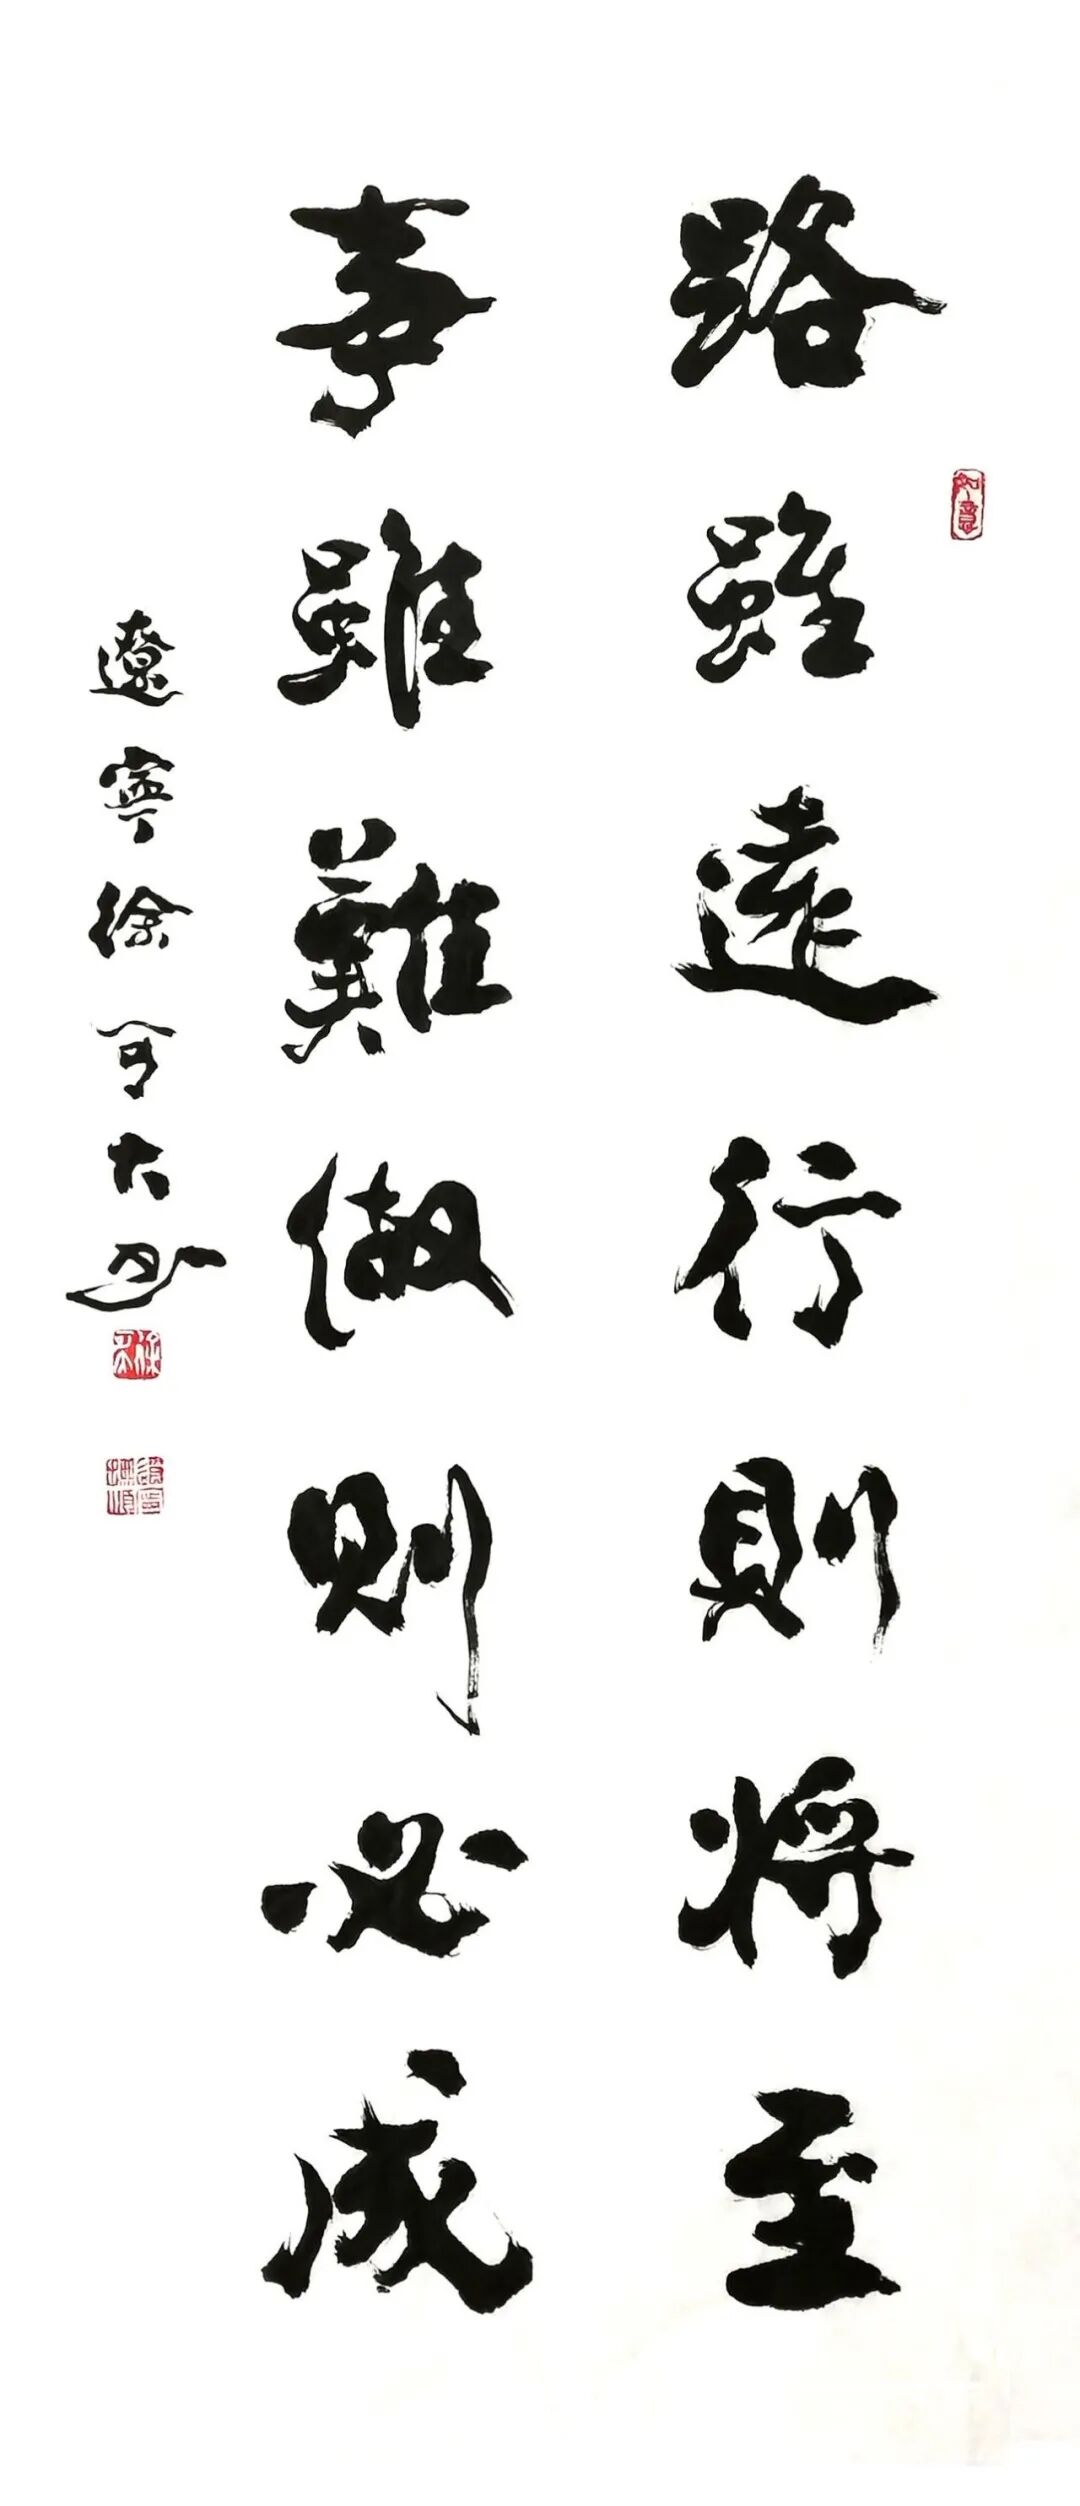 路雖遠行則將至
事雖難做則必成
遼寧徐
如意